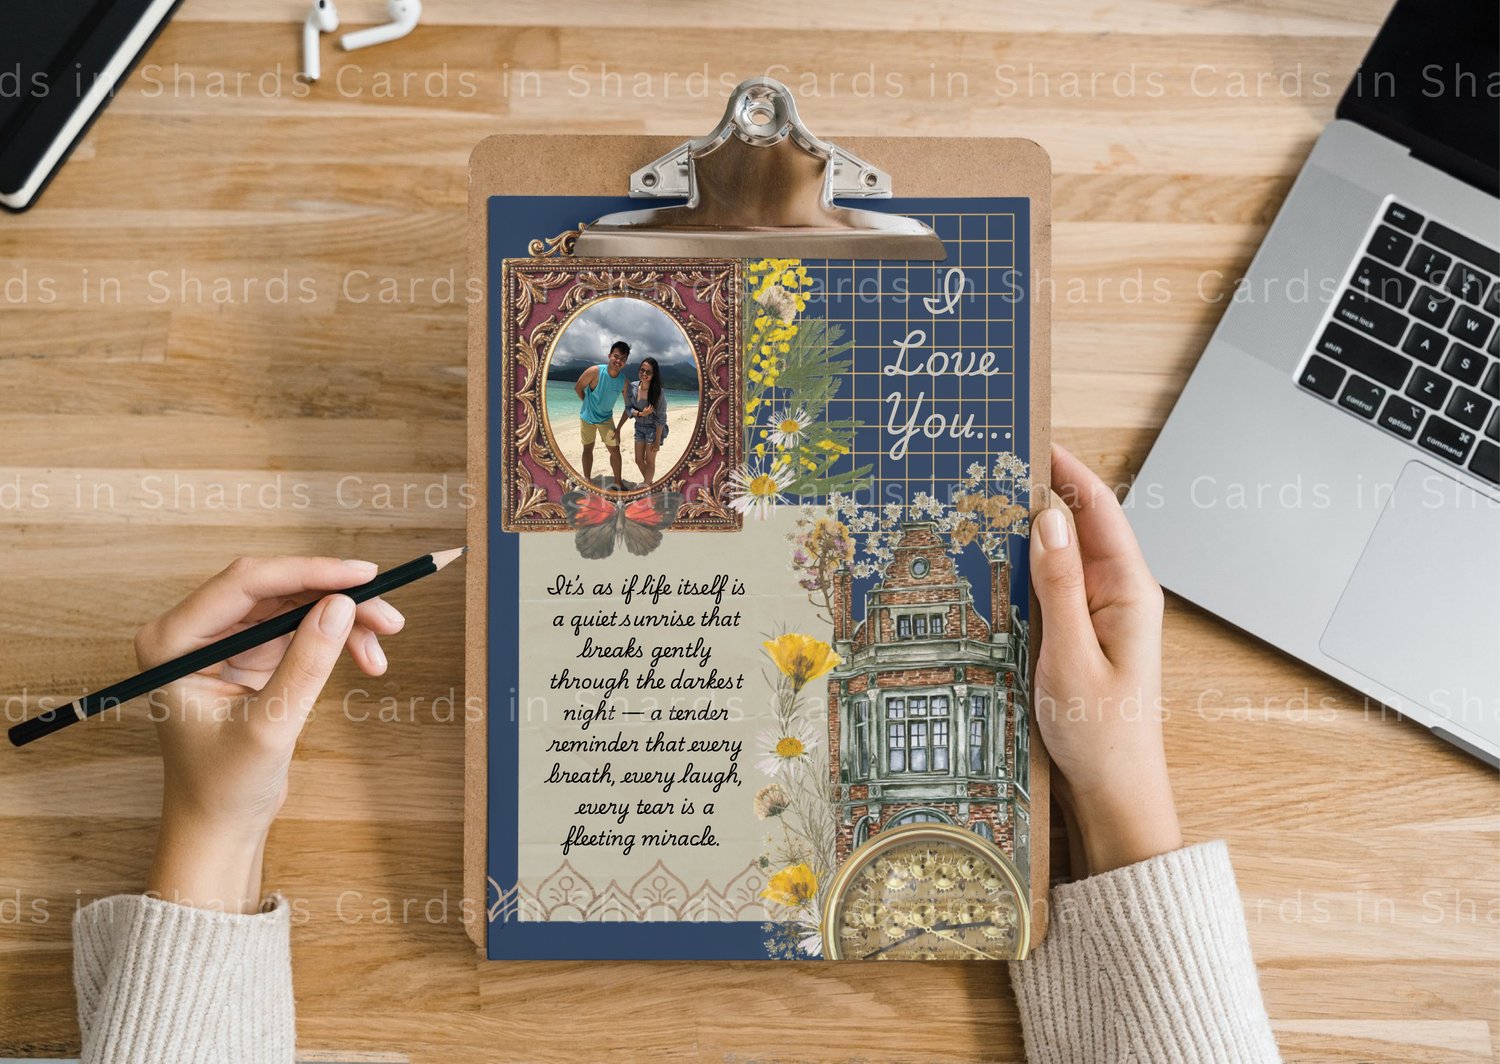 ds in Shards Cards in Shards Cards in Sha
ds in Shards Cards in Shards Cards in Sha
I
Love
You...
Cards in Shards Cards in Shards Cards in
It's as if life itself is
a quiet sunrise that
breaks gently
through the darkest
night — a tender
reminder that every
breath, every laugh,
every tear is a
fleeting miracle.
ds in Shards Cards in Shards Cards in Sha
Cards in Shards Cards in Shards Cards in Sha
esc
1
2
Q
W
caps lock
A
S
shift
Z
X
fn
control
option
command